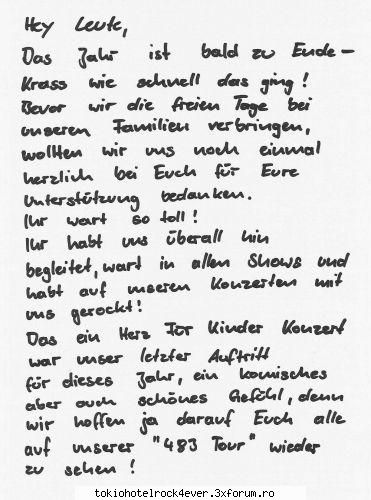 Hey Leute,
Das Jahr ist bald zu Ende –
Krass wie schnell das ging!
Bevor wir die freien Tage bei
unseren Familien verbringen,
wollten wir uns noch einmal
herzlich bei Euch für Eure
Unterstützung bedanken.
Ihr wart so toll!
Ihr habt uns überall hin
begleitet, wart in allen Shows und
habt auf unseren Konzerten mit
uns gerockt!
Das ein Herz für Kinder Konzert
war unser letzter Auftritt
für dieses Jahr, ein komisches
aber auch schönes Gefühl, denn
wir hoffen ja darauf Euch alle
auf unserer "483 Tour" wieder
zu sehen!
tokiohotelrock4ever.3xforum.ro